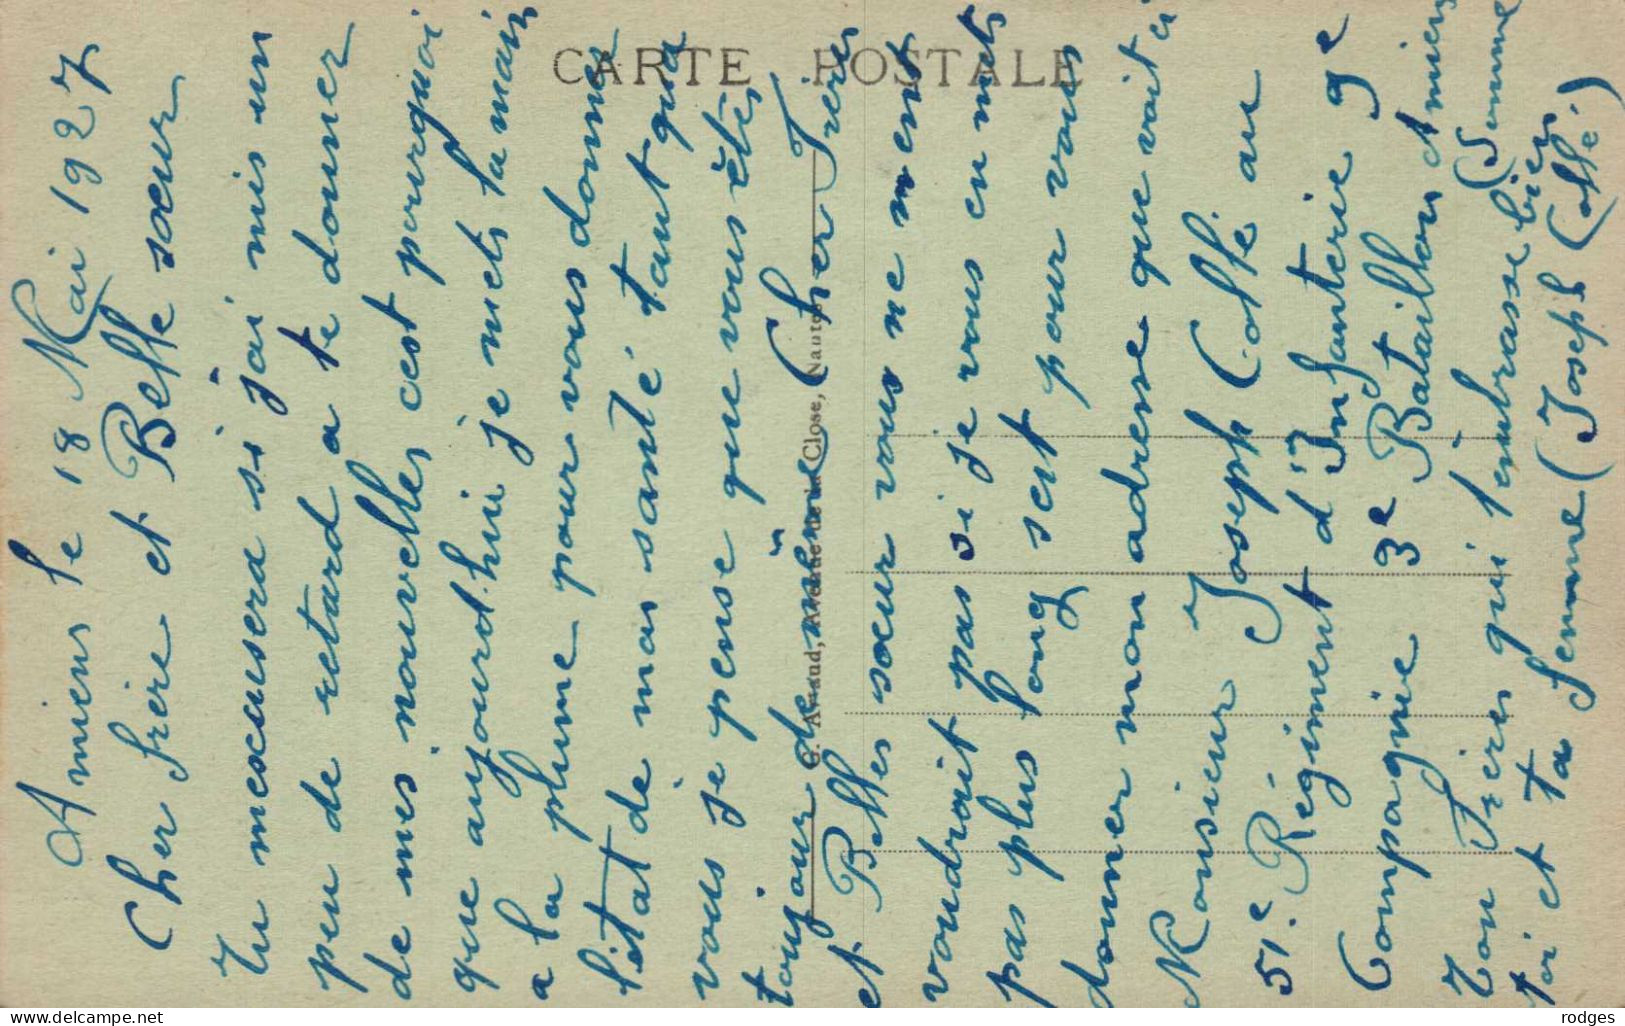 CARTE POSTALE
G. Artaud, Avenue de la Close, Nantes
Amiens le 18 Mai 1927
Cher frère et Belle sœur
Tu mescusera si j'ai mis un
peu de retard a te donner
de mes nouvelles cest pourquoi
que aujourd'hui je mets la main
a la plume pour vous donner
l'état de ma santé tant qua
vous je pense que vous êtes
toujour de même Cher Frères
et Belles sœur vous ne ment
voudrait pas si je vous en mets
pas plus long seut pour vous
donner mon adresse que voit ci
Monsieur Joseph Collé au
51e Régiment d'Infanterie 9e
Compagnie 3e Bataillon Amiens
(Somme
Ton Frères qui t'embrasse bien
toi et ta femme (Joseph Collé.)
delcampe.net
rodges